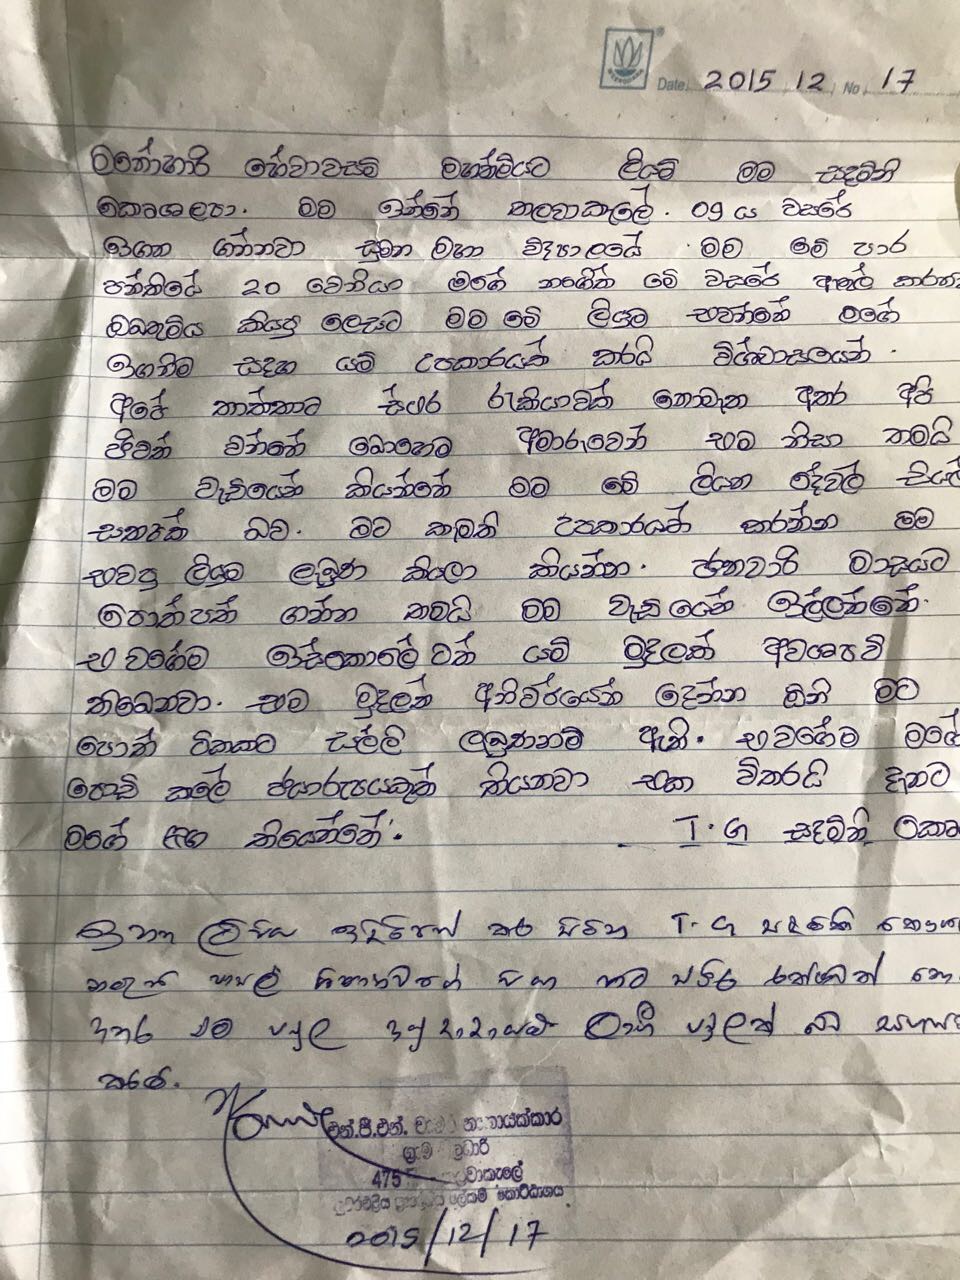 Date 2015 12 No 17
මනෝහාරි හේවාවසම් මහත්මියට ලියමි මම සඳමිනි
කෞශල්‍යා. මම ඉන්නේ තලවාකැලේ. 09 ය වසරේ
ඉගන ගන්නවා සුමන මහා විද්‍යාලයේ මම මේ පාර
පන්තියේ 20 වෙනියා මගේ නංගිත් මේ වසරේ ඇතුල්
ඔබතුමිය කියපු ලෙසට මම මේ ලියුම එවන්නේ මගේ
ඉගනිම සඳහා යම් උපකාරයක් කරයි විශ්වාසයෙන්.
අපේ තාත්තාට ස්ථිර රැකියාවක් නොමැත අතර අපි
ජීවත් වන්නේ බොහොම අමාරුවෙන් එම නිසා තමයි
මම වැඩියෙන් කියන්නේ මම මේ ලියන දේවල්
සත්‍යක් බව. මට කැමති උපකාරයක් කරන්න මම
එවපු ලියුම ලැබුණ කියලා කියන්න. ජනවාරි මාසයට
පොත්පත් ගන්න තමයි මම වැඩියෙන් ඉල්ලන්නේ.
එවගේම ඉස්කොලේටත් යම් මුදලක් අවශ්‍යවී
තිබෙනවා. එම මුදලත් අනිවර්යෙන් දෙන්න ඕනි මට
පොත් ටිකකට සල්ලි ලැබුණනම් ඇති. එවගේම මගේ
පොඩි කලේ ජයාරූපයකුත් තියනවා එක විතරයි දැනට
මගේ ළඟ තියෙන්නේ. T.G සඳමිනි
ඉහත ලිපිය ඉදිරිපත් කර සිටින T.G සඳමිනි
අතර එම පවුල අඩු ආදායම් ලාභී පවුලක් බව
කරමි.
එන්.පී.එන්.
ග්‍රාම
475
2015/12/17